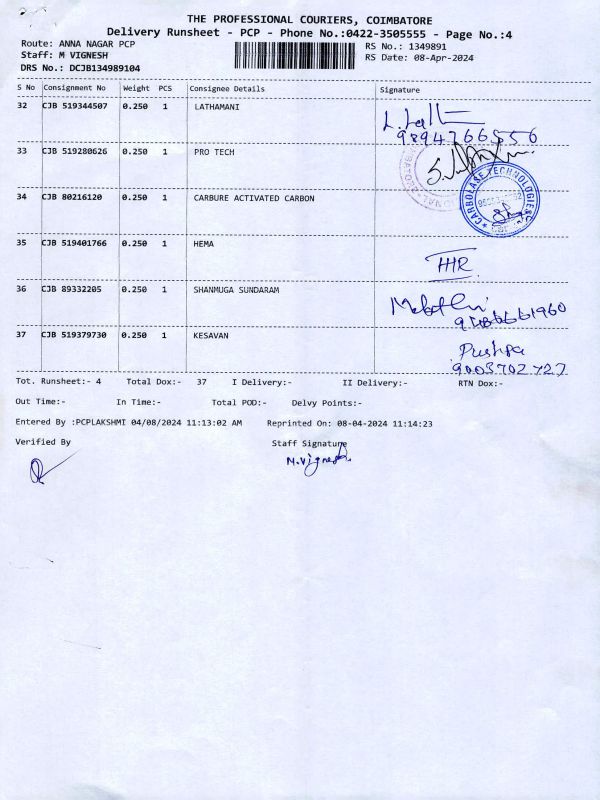 THE PROFESSIONAL COURIERS, COIMBATORE
Delivery Runsheet - PCP - Phone No.:0422-3505555 - Page No.:4
Route: ANNA NAGAR PCP
RS No.: 1349891
Staff: M VIGNESH
RS Date: 08-Apr-2024
DRS No.: DCJB134989104
S No Consignment No Weight PCS Consignee Details Signature
32 CJB 519344507 0.250 1 LATHAMANI
9894766556
33 CJB 519280626 0.250 1 PRO TECH
34 CJB 80216120 0.250 1 CARBURE ACTIVATED CARBON
CARBOLASE TECHNOLOGIES
35 CJB 519401766 0.250 1 HEMA
36 CJB 89332205 0.250 1 SHANMUGA SUNDARAM
37 CJB 519379730 0.250 1 KESAVAN
Pushpa
9003702727
Tot. Runsheet:- 4 Total Dox:- 37 I Delivery:- II Delivery:- RTN Dox:-
Out Time:- In Time:- Total POD:- Delvy Points:-
Entered By :PCPLAKSHMI 04/08/2024 11:13:02 AM Reprinted On: 08-04-2024 11:14:23
Verified By Staff Signature
M.Vignesh